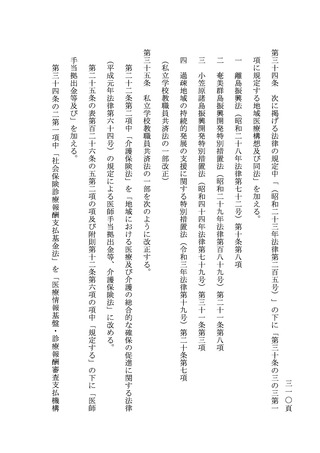 三一〇頁
第三十四条　次に掲げる法律の規定中「（昭和二十三年法律第二百五号）」の下に「第三十条の三の三第一
項に規定する地域医療構想及び同法」を加える。
一　離島振興法（昭和二十八年法律第七十二号）第十条第八項
二　奄美群島振興開発特別措置法（昭和二十九年法律第百八十九号）第二十一条第八項
三　小笠原諸島振興開発特別措置法（昭和四十四年法律第七十九号）第三十一条第三項
四　過疎地域の持続的発展の支援に関する特別措置法（令和三年法律第十九号）第二十条第七項
（私立学校教職員共済法の一部改正）
第三十五条　私立学校教職員共済法の一部を次のように改正する。
第二十二条第二項中「介護保険法」を「地域における医療及び介護の総合的な確保の促進に関する法律
（平成元年法律第六十四号）の規定による医師手当拠出金等、介護保険法」に改める。
第二十五条の表第百二十六条の五第二項の項及び附則第十二条第六項の項中「規定する」の下に「医師
手当拠出金等及び」を加える。
第三十四条の二第一項中「社会保険診療報酬支払基金法」を「医療情報基盤・診療報酬審査支払機構